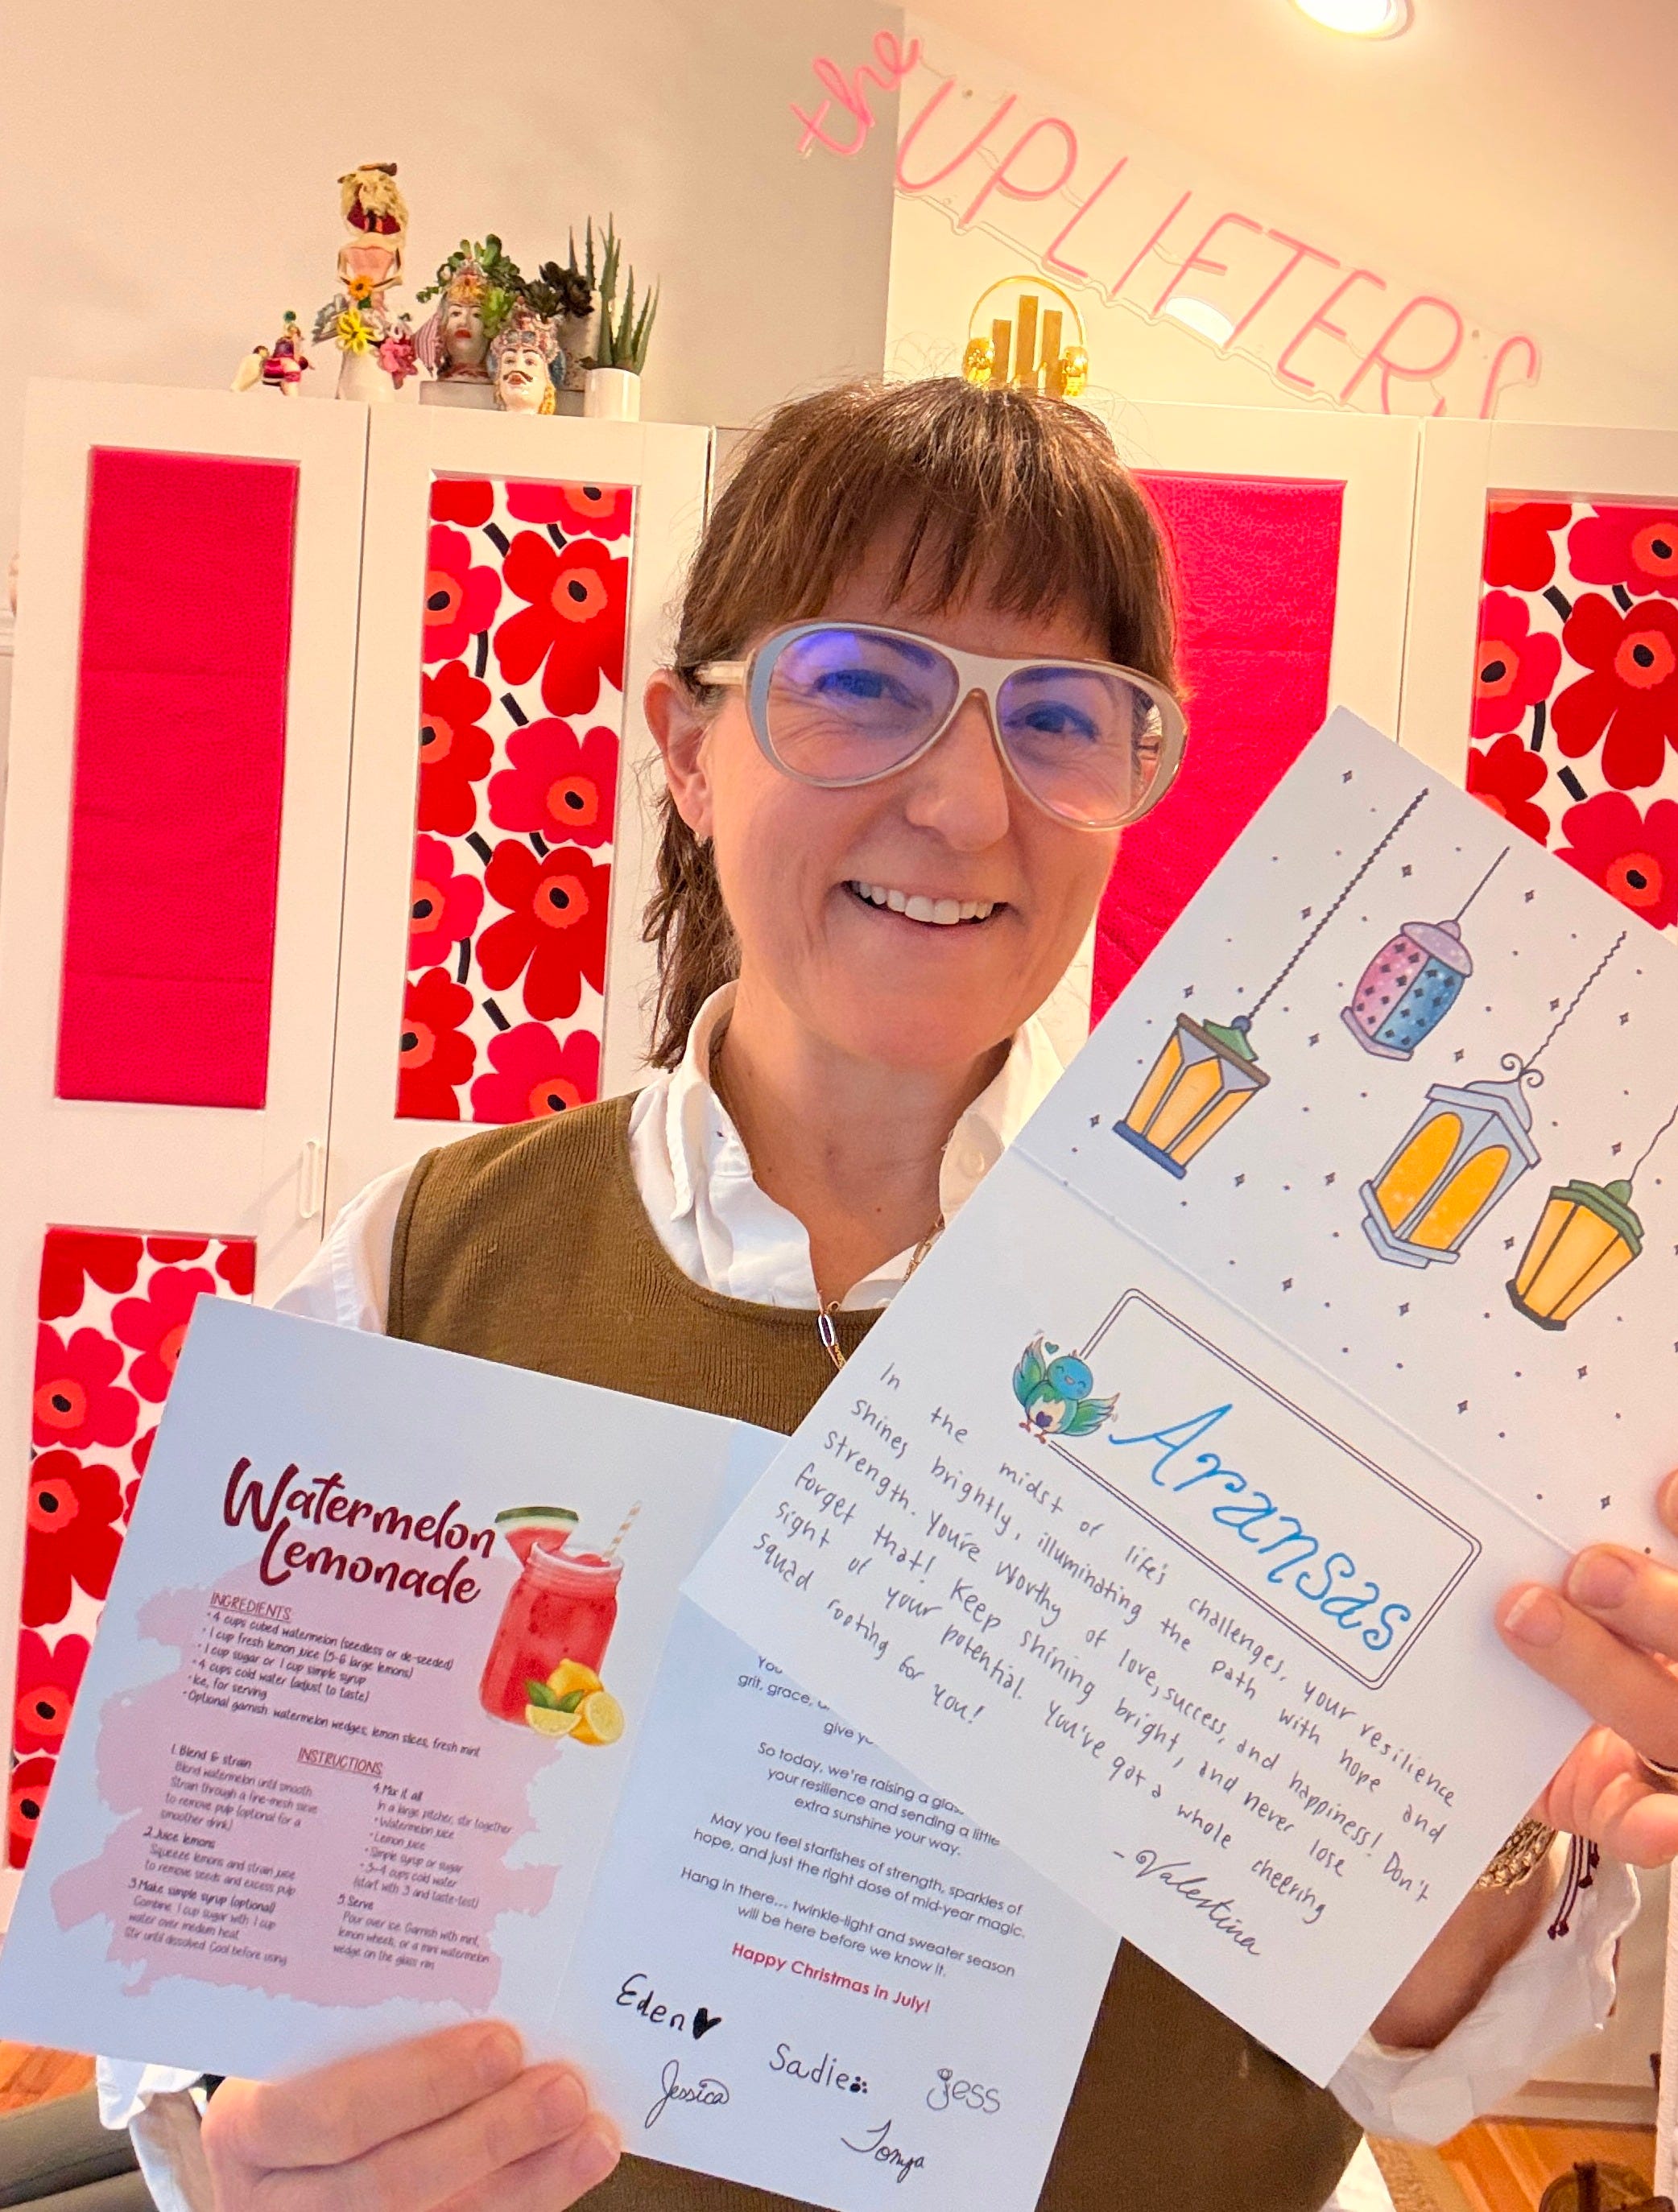 the UPLIFTERS
Aransas
In the midst of life's challenges, your resilience
shines brightly, illuminating the path with hope and
strength. You're worthy of love, success, and happiness! Don't
forget that! Keep shining bright, and never lose
sight of your potential. You've got a whole cheering
squad rooting for you!
- Valestina
Watermelon
Lemonade
INGREDIENTS
• 4 cups cubed watermelon (seedless or de-seeded)
• 1 cup fresh lemon juice (5-6 large lemons)
• 1 cup sugar or 1 cup simple syrup
• 4 cups cold water (adjust to taste)
• Ice, for serving
• Optional garnish: watermelon wedges, lemon slices, fresh mint
INSTRUCTIONS
1. Blend & strain
Blend watermelon until smooth.
Strain through a fine-mesh sieve
to remove pulp (optional for a
smoother drink)
2. Juice lemons
Squeeze lemons and strain juice
to remove seeds and excess pulp
3. Make simple syrup (optional)
Combine 1 cup sugar with 1 cup
water over medium heat.
Stir until dissolved. Cool before using
4. Mix it all
In a large pitcher, stir together
• Watermelon juice
• Lemon juice
• Simple syrup or sugar
• 3-4 cups cold water
(start with 3 and taste-test)
5. Serve
Pour over ice. Garnish with mint,
lemon wheels, or a mini watermelon
wedge on the glass rim
grit, grace,
give
So today, we're raising a
your resilience and sending a little
extra sunshine your way.
May you feel starfishes of strength, sparkles of
hope, and just the right dose of mid-year magic.
Hang in there... twinkle-light and sweater season
will be here before we know it.
Happy Christmas in July!
Eden
Sadie
Jess
Jessica
Tonya